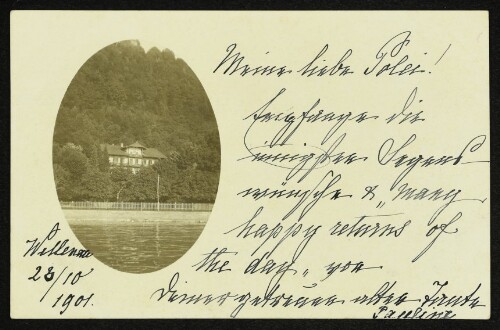 Meine liebe Polei!
Empfange die
innigsten Segens
wünsche & „many
happy returns of
the day„ von
Deiner getreuen alten Tante
Pauline
23/10
1901.